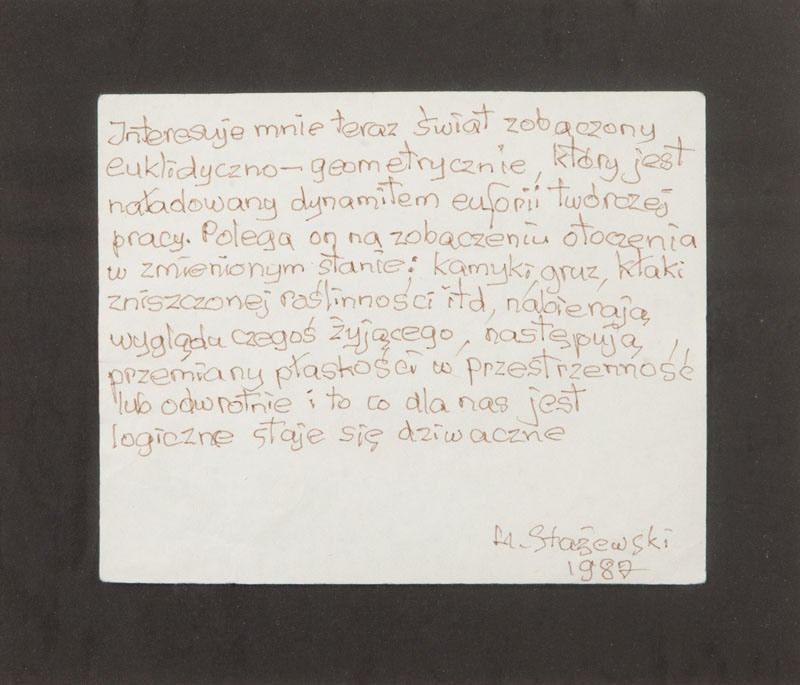 Interesuje mnie teraz świat zobączony
euklidyczno-geometrycznie, który jest
naładowany dynamitem euforii twórczej
pracy. Polega on na zobączeniu otoczenia
w zmienionym stanie: kamyki, gruz, kłaki
zniszczonej roślinności itd, nabierają
wyglądu czegoś żyjącego, następują
przemiany płaskości w przestrzenność
lub odwrotnie i to co dla nas jest
logiczne staje się dziwaczne
H. Stażewski
1987